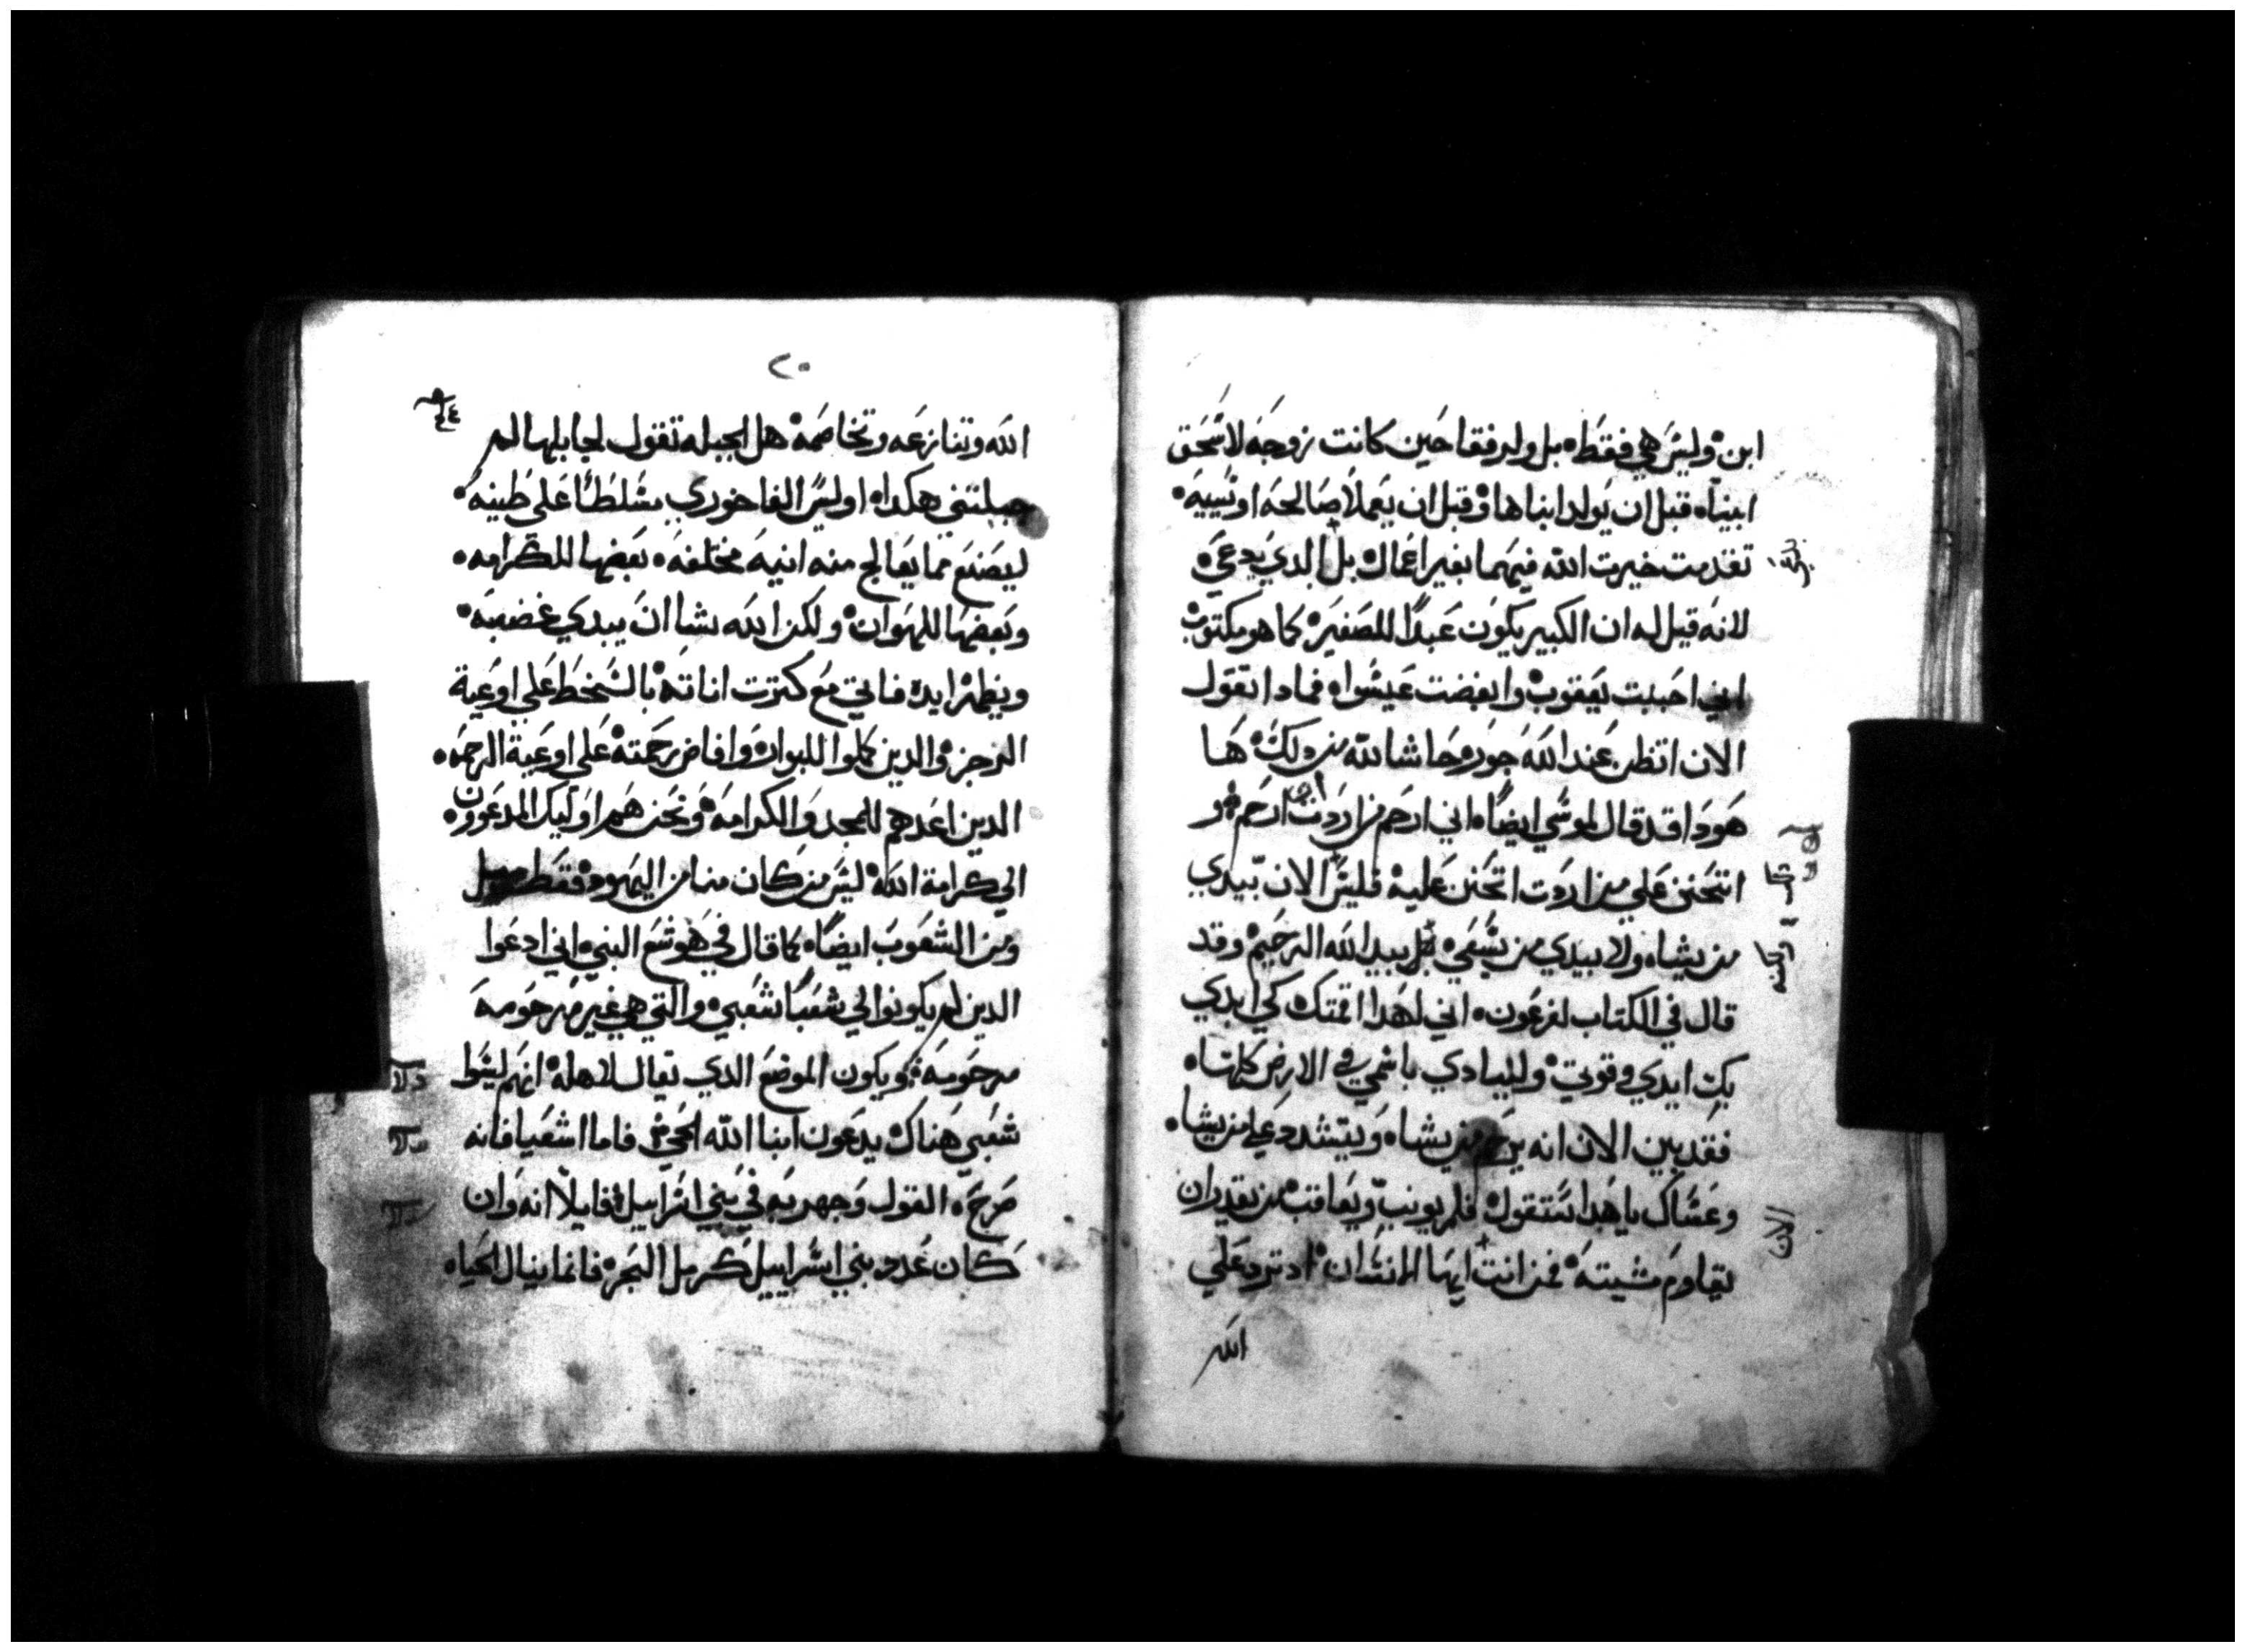 ابن وليس هي فقط بل ولد رفقا حين كانت زوجه لاسحق
ابينا قبل ان يولد ابناها وقبل ان يعملا صالحه او سييه
تقدمت خيرت الله فيهما بغير اعمال بل الدي يدعي
لانه قيل له ان الكبير يكون عبدا للصغير كما هو مكتوب
اني احببت يعقوب وابغضت عيسوا فمادا تقول
الان اتظن عند الله جور حاشا لله من دلك ها
هودا قد قال لموسي ايضا اني ارحم من اردت ارحم و
اتحنن علي من اردت اتحنن عليه فليس الان بيدي
من يشا ولا بيدي من يسعي بل بيد الله الرحيم وقد
قال في الكتاب لفرعون اني لهدا اقمتك كي ابدي
بك ايدي وقوتي ولينادي باسمي في الارض كلها
فقد بين الان انه يرحم من يشا ويتشدد علي من يشا
وعساك يا هدا ستقول فلم يونب ويعاقب من يقدر ان
يقاوم مشيته فمن انت ايها الانسان اد ترد علي
الله
الان
٢٠
الله وتنازعه وتخاصمه هل الجبله تقول لجابلها لم
جبلتني هكدا او ليس الفاخوري مسلطا علي طينه
ليصنع مما يعالج منه انيه مختلفه بعضها للكرامه
وبعضها للهوان ولكن الله يشا ان يبدي غضبه
ويظهر ايده فاتي مع كترت اناته بالسخط علي اوعية
الرجز والدين كملوا للبوار وافاض رحمته علي اوعية الرحمه
الدين اعدهم للمجد والكرامه ونحن هم اوليك المدعوون
الي كرامة الله ليس من كان منا من اليهود فقط بل
ومن الشعوب ايضا كما قال في هوشع النبي اني ادعوا
الدين لم يكونوا لي شعبا شعبي والتي هي غير مرحومه
مرحومه ويكون الموضع الدي يقال لاهله انهم ليسوا
شعبي هناك يدعون ابنا الله الحي فاما اشعيا فانه
صرح القول وجهر به في بني اسراييل قايلا انه وان
كان عدد بني اسراييل كرمل البحر فانما ينال الحياه